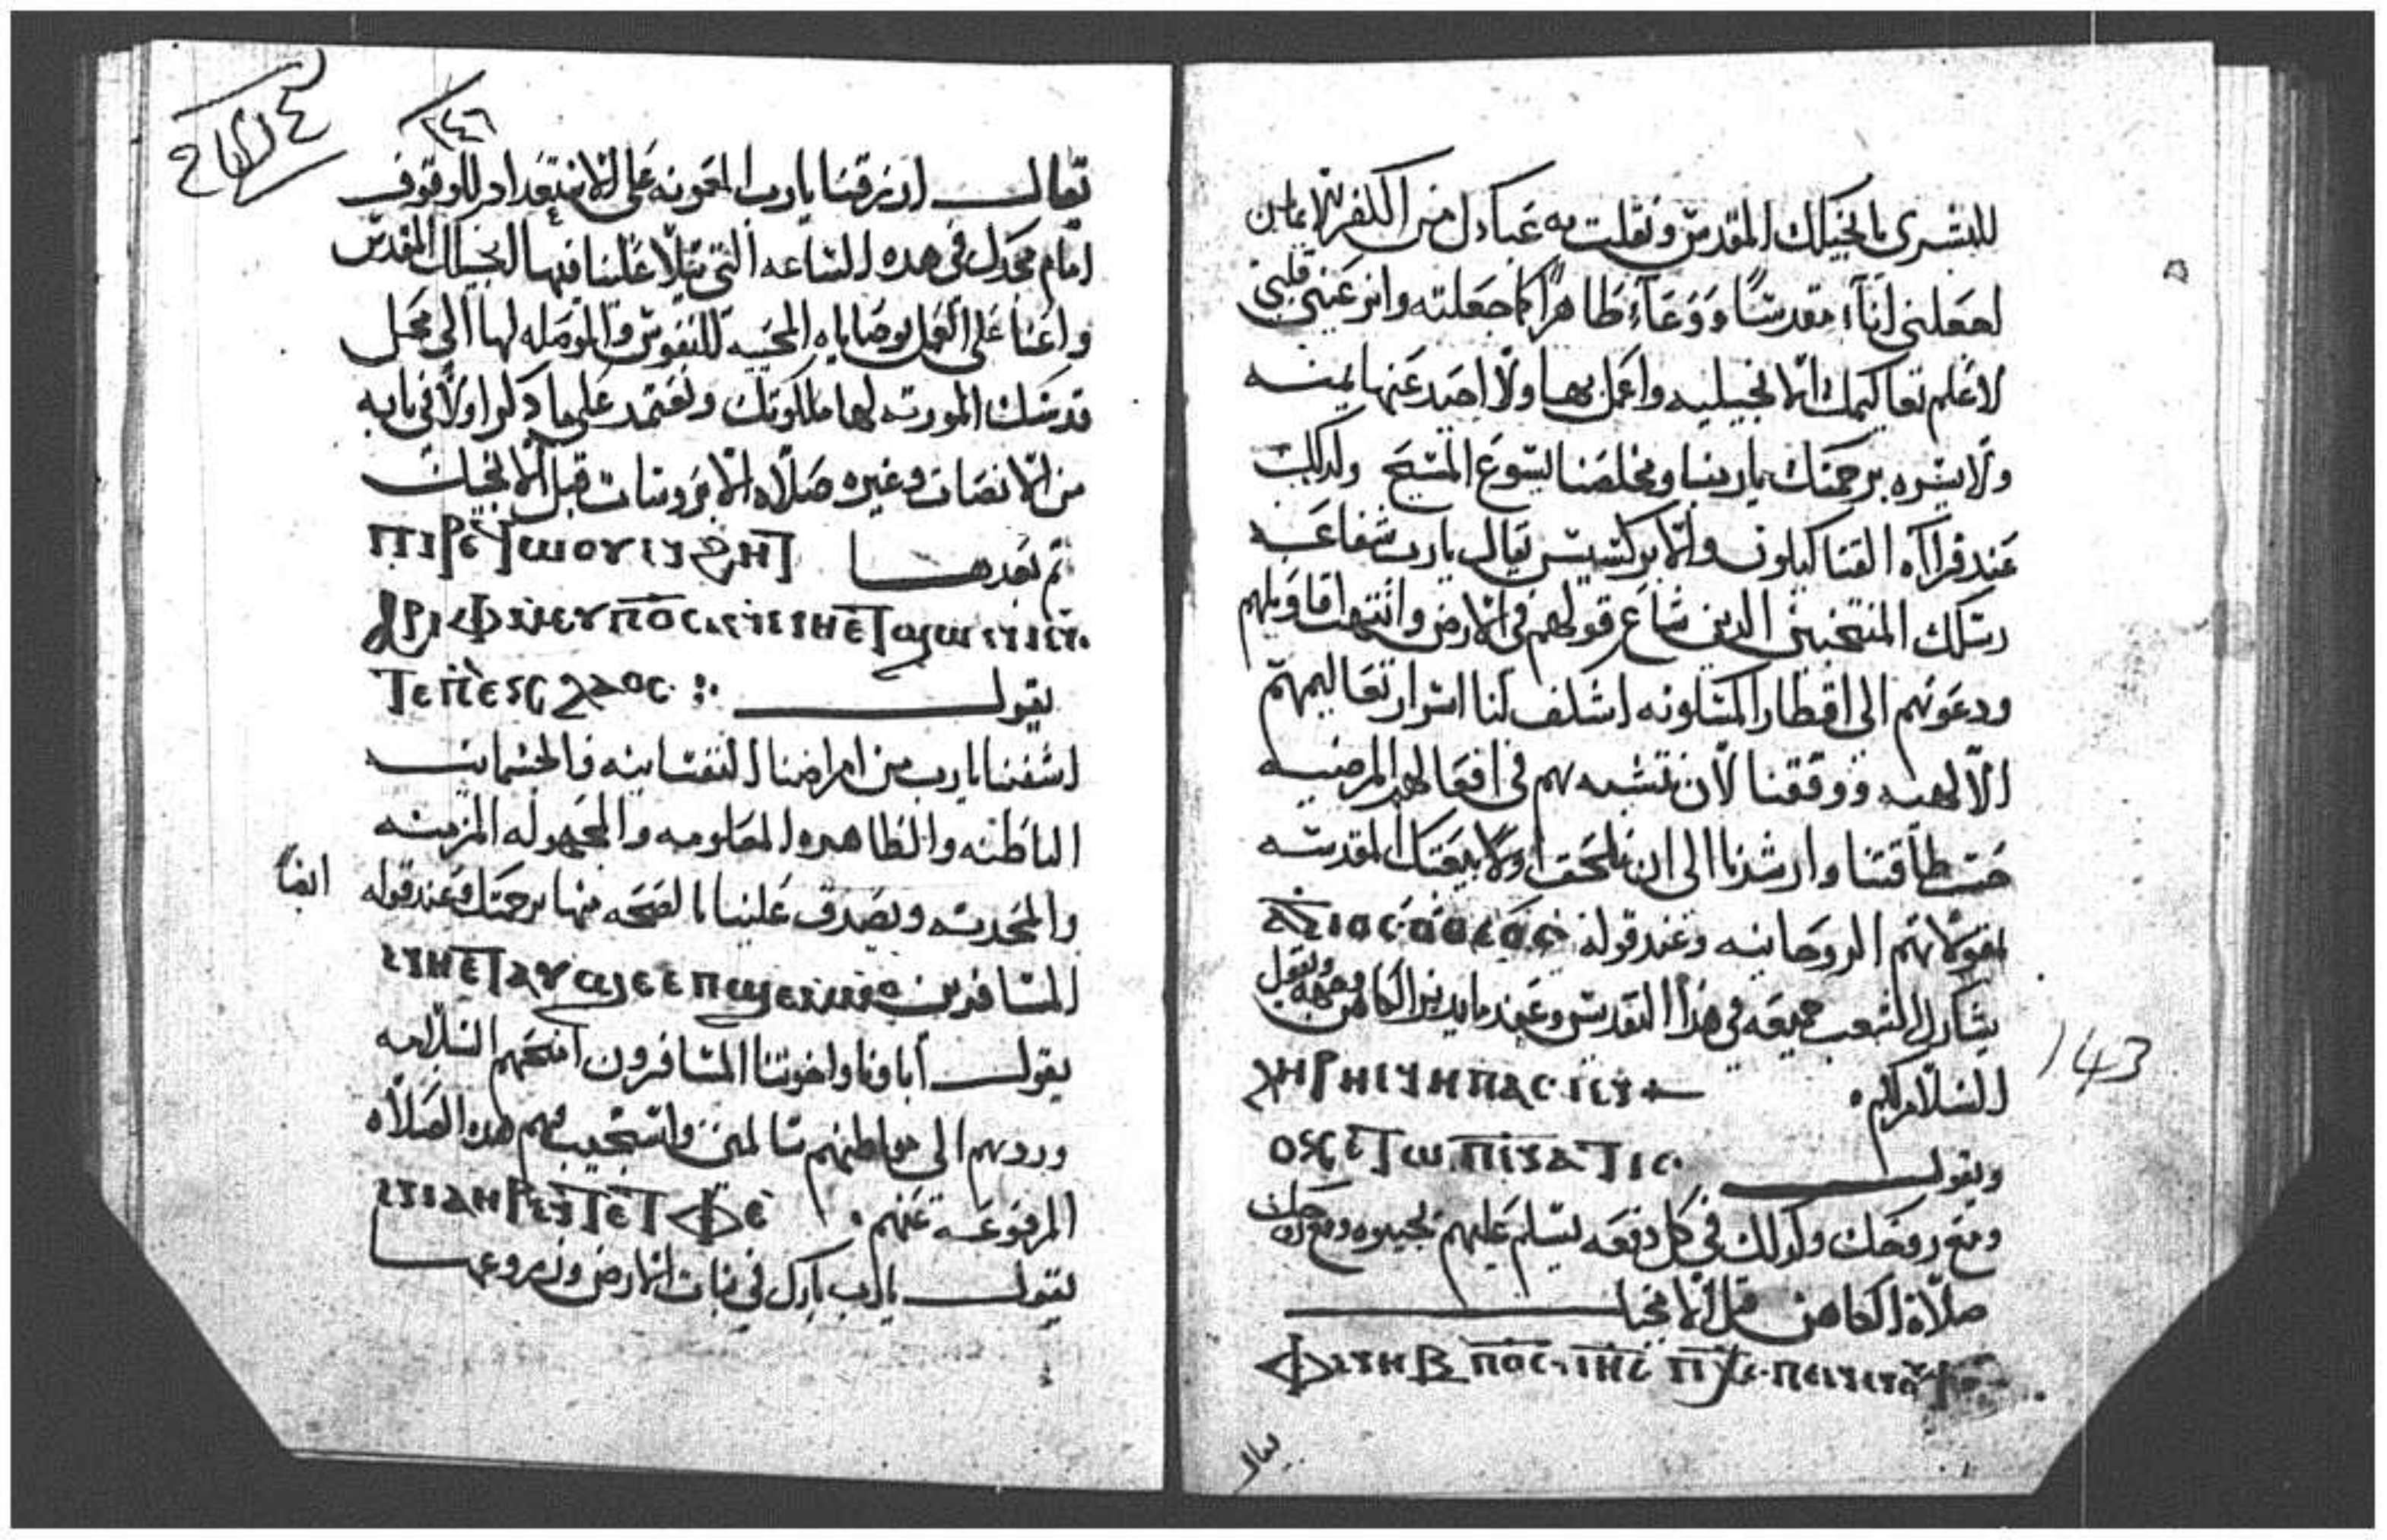 للبشرى بانجيلك المقدس ونقلت به عبادك من الكفر للايمان
اجعلني انآء مقدسًا ووعآء طاهرًا كما جعلته وانر عيني قلبي
لاعلم تعاليمك الانجيليه واعمل بها ولا احيد عنها يمنه
ولا يسره برحمتك ياربنا ومخلصنا يسوع المسيح وكدلك
عند قراآه القتاليكون والابركسيس يقال يارب شفاعه
رسلك المنتخبين الدين شاع قولهم في الارض وانتهت اقاويلهم
ودعوتهم الى اقطار المسكونه اكشف لنا اسرار تعاليمهم
الالهيه ووفقنا لان نتشبه بهم في افعالهم المرضيه
حسب طاقتنا وارشدنا الى ان نلحق اولا ببيعتك المقدسه
الروحانيه وعند قوله ⲁⲅⲓⲟⲥ ⲟ ⲑⲉⲟⲥ
يشارك الشعب جميعه في هذا التقديس وعندما يدير الكاهن وجهه ويقول
السلام لكم ⲭⲏⲣⲏⲛⲏ ⲡⲁⲥⲓⲛ
ويقول ⲟⲩⲉⲧⲱ ⲡⲛⲁⲧⲓⲥ
ومع روحك وكدلك في كل دفعه يسلم عليهم يجيبوه ومع روحك
صلاة الكاهن قبل الانجيل
ⲫⲛⲏⲃ ⲡⲟⲥ ⲓⲏⲥ ⲡⲭⲥ ⲡⲉⲛⲛⲟⲩϯ
يقال
143
١٤٦
تقال ارزقنا يارب المعونه على الاستعداد للوقوف
امام مجدك في هده الساعه التي يتلا علينا فيها انجيلك المقدس
واعنا على العمل بوصاياه المحييه للنفوس والموصله لها الى محل
قدسك المورثه لها ملكوتك ويعتمد على ما دكر اولا في بابه
من الانصات وغيره صلاه الابروسات قبل الانجيل
ثم بعدها ⲡⲓⲣⲉϥⲱⲟⲩⲛϩⲏⲧ
ⲁⲣⲓⲫⲙⲉⲩⲓ ⲡⲟⲥ ⲛⲛⲏⲉⲧϣⲱⲛⲓ ⲛⲧⲉ
ⲡⲉⲕⲗⲁⲟⲥ يقول
اشفنا يارب من امراضنا النفسانيه والجسمانيه
الباطنه والظاهره المعلومه والمجهوله المزمنه
والمحدثه وتصدق علينا بالصحه منها برحمتك وعند قوله ايضا
المسافرين ⲛⲏⲉⲧⲁⲩϣⲉ ⲉⲡϣⲉⲙⲙⲟ
يقول اباونا واخوتنا المسافرون امنحهم السلامه
وردهم الى مواطنهم سالمين واستجيب هده الصلاه
المرفوعه عنهم ⲛⲓⲁⲏⲣ ⲛⲧⲉ ⲧⲫⲉ
يقول يارب بارك في نبات الارض وزروعها